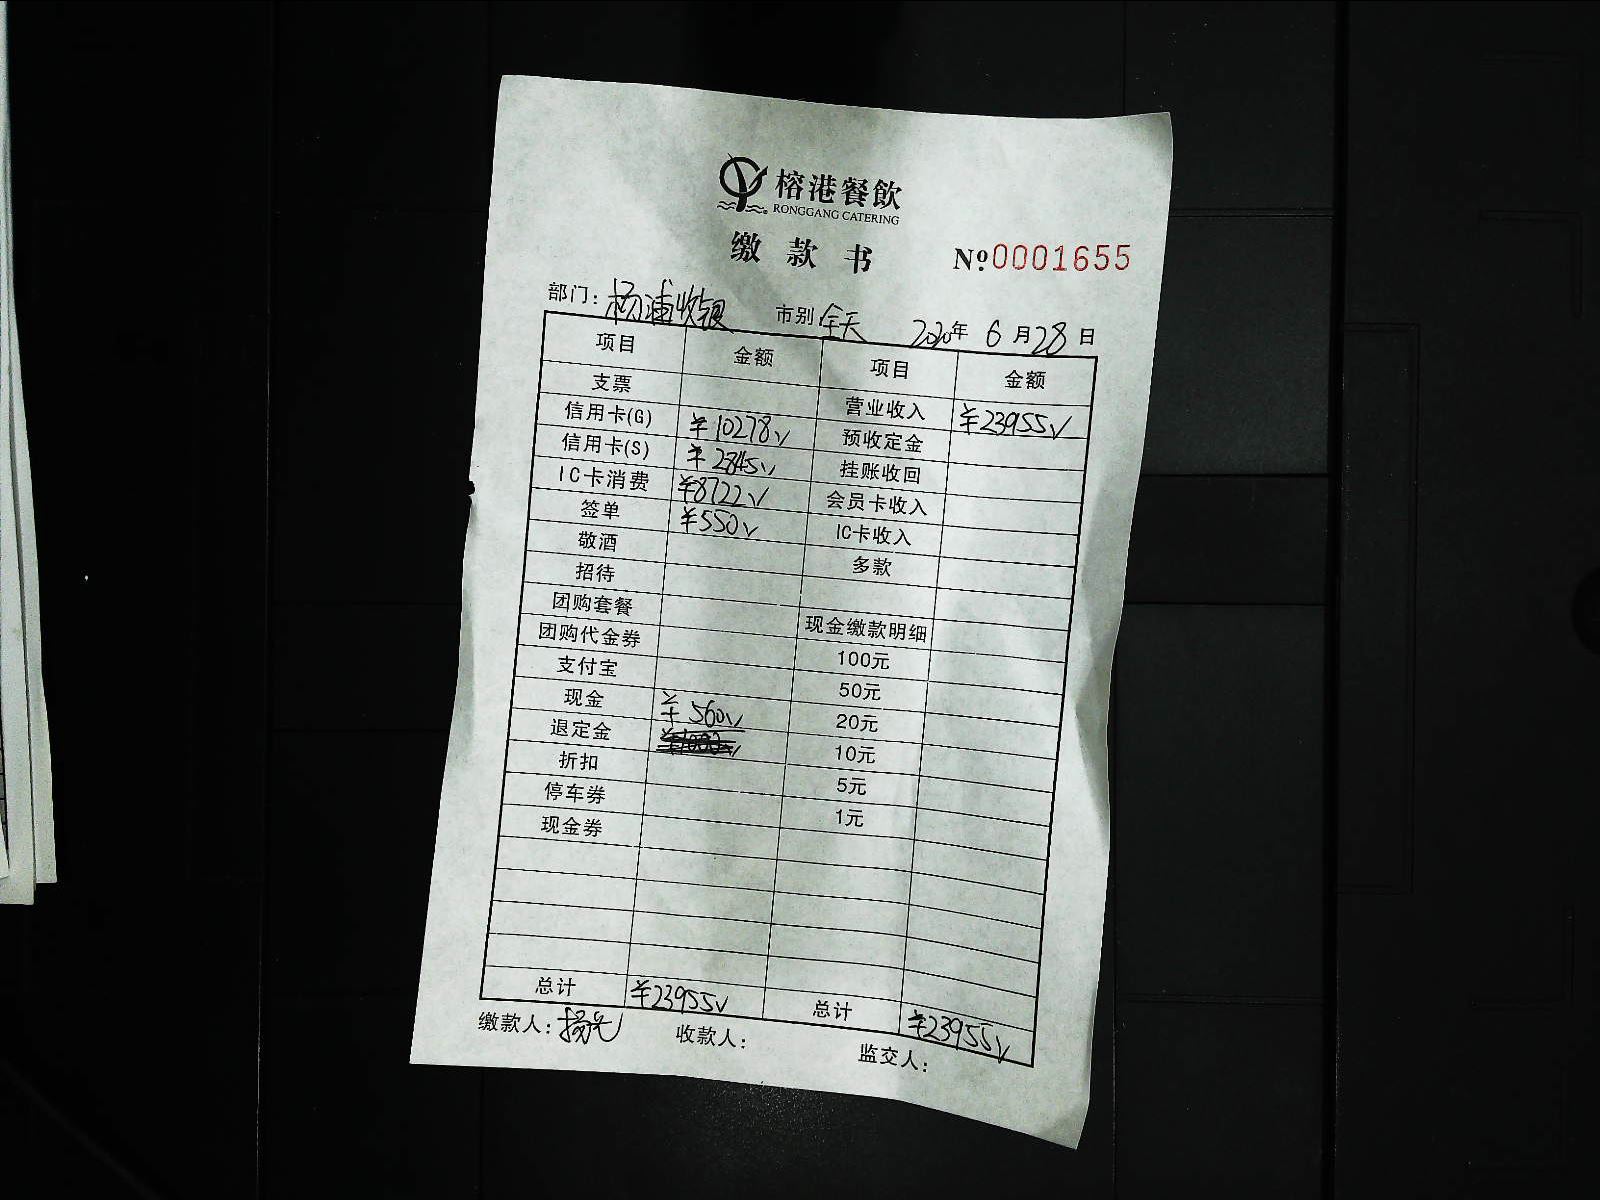 榕港餐飲
RONGGANG CATERING
缴款书 №0001655
部门：杨浦收银 市别 全天 2020年6月28日
项目 金额 项目 金额
支票 营业收入 ¥23955√
信用卡(G) ¥10278√ 预收定金
信用卡(S) ¥2845√ 挂账收回
IC卡消费 ¥8722√ 会员卡收入
签单 ¥550√ IC卡收入
敬酒 多款
招待
团购套餐 现金缴款明细
团购代金券 100元
支付宝 50元
现金 ¥560√ 20元
退定金 10元
折扣 5元
停车券 1元
现金券
总计 ¥23955√ 总计 ¥23955√
缴款人： 收款人： 监交人：